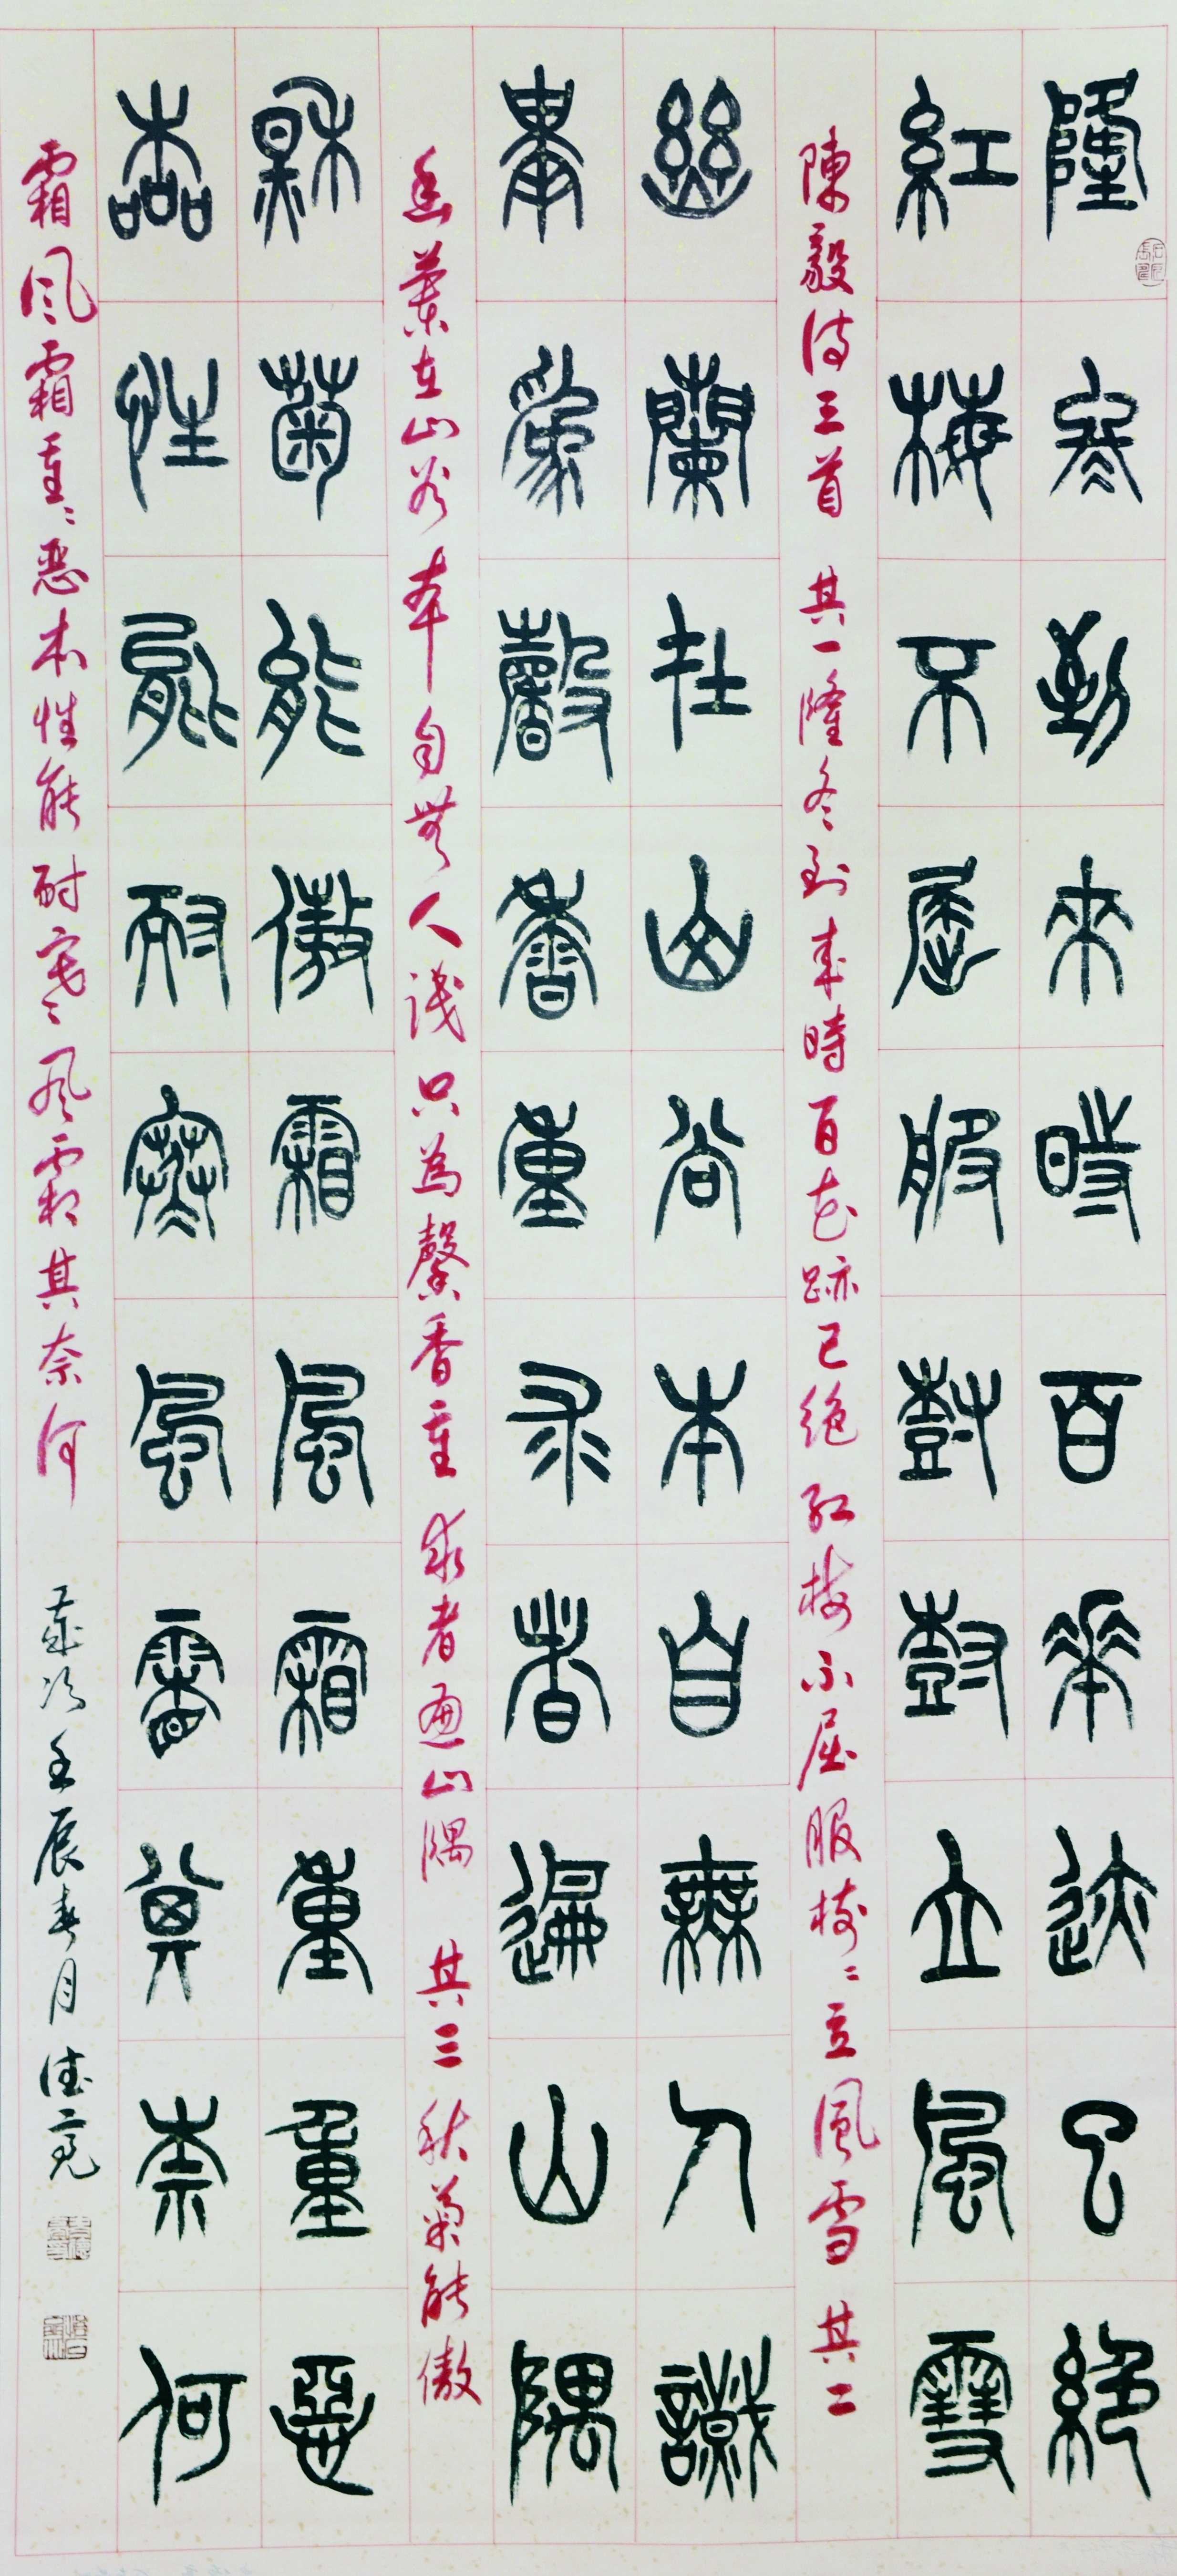 隆冬到來時百花跡已絕
紅梅不屈服樹樹立風雪
陳毅詩三首 其一隆冬到來時百花跡已絕 紅梅不屈服樹〻立風雪 其二
幽蘭在山谷本自無人識
畢為馨香重求者遍山隅
幽蘭在山谷 本自無人識 只為馨香重 求者遍山隅 其三 秋菊能傲
秋菊能傲霜風霜重重惡
本性能耐寒風霜其奈何
霜風霜重〻惡本性能耐寒〻風霜其奈何 壬辰春月 德亮